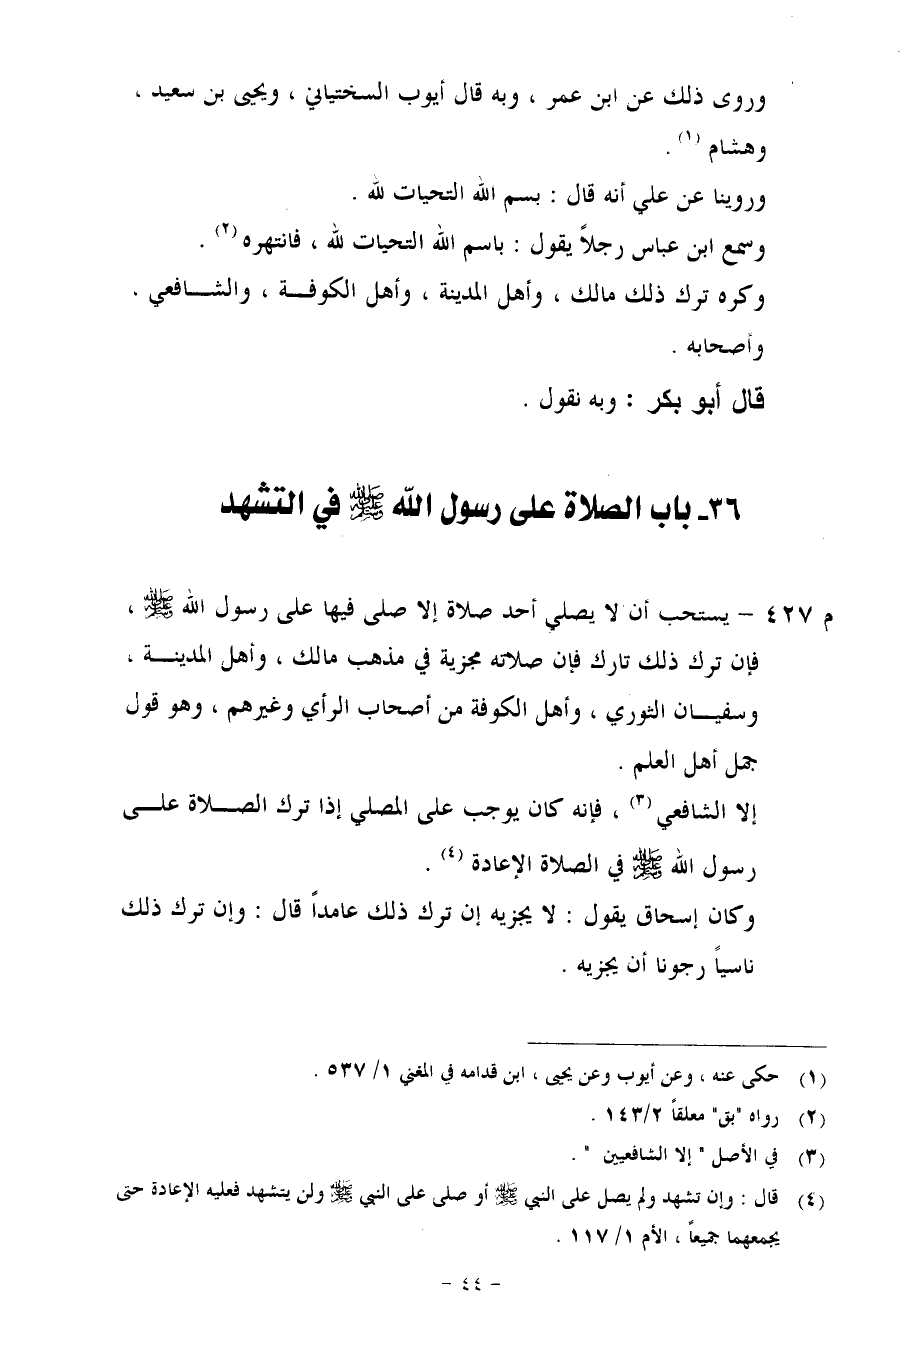 وروى ذلك عن ابن عمر ، وبه قال أيوب السختياني ، ويحيى بن سعيد ،
وهشام (١) .
وروينا عن علي أنه قال : بسم الله التحيات لله .
وسمع ابن عباس رجلاً يقول : باسم الله التحيات لله ، فانتهره (٢) .
وكره ترك ذلك مالك ، وأهل المدينة ، وأهل الكوفة ، والشافعي .
وأصحابه .
قال أبو بكر : وبه نقول .
٣٦ـ باب الصلاة على رسول الله ﷺ في التشهد
م ٤٢٧ – يستحب أن لا يصلي أحد صلاة إلا صلى فيها على رسول الله ﷺ ،
فإن ترك ذلك تارك فإن صلاته مجزية في مذهب مالك ، وأهل المدينة ،
وسفيان الثوري ، وأهل الكوفة من أصحاب الرأي وغيرهم ، وهو قول
جمل أهل العلم .
إلا الشافعي (٣) ، فإنه كان يوجب على المصلي إذا ترك الصلاة على
رسول الله ﷺ في الصلاة الإعادة (٤) .
وكان إسحاق يقول : لا يجزيه إن ترك ذلك عامداً قال : وإن ترك ذلك
ناسياً رجونا أن يجزيه .
(١) حكى عنه ، وعن أيوب وعن يحيى ، ابن قدامه في المغني ١/ ٥٣٧ .
(٢) رواه "بق" معلقاً ١٤٣/٢ .
(٣) في الأصل " إلا الشافعيين " .
(٤) قال : وإن تشهد ولم يصل على النبي ﷺ أو صلى على النبي ﷺ ولن يتشهد فعليه الإعادة حتى
يجمعهما جميعاً ، الأم ١/ ١١٧ .
– ٤٤ –